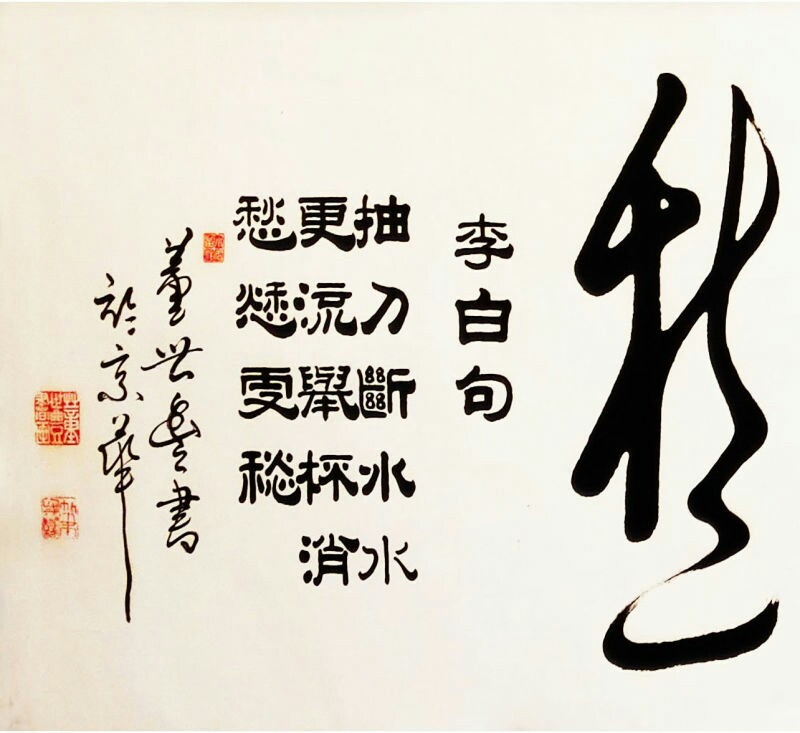 愁
李白句
抽刀斷水水
更流舉杯消
愁愁更愁
董世書
於京華